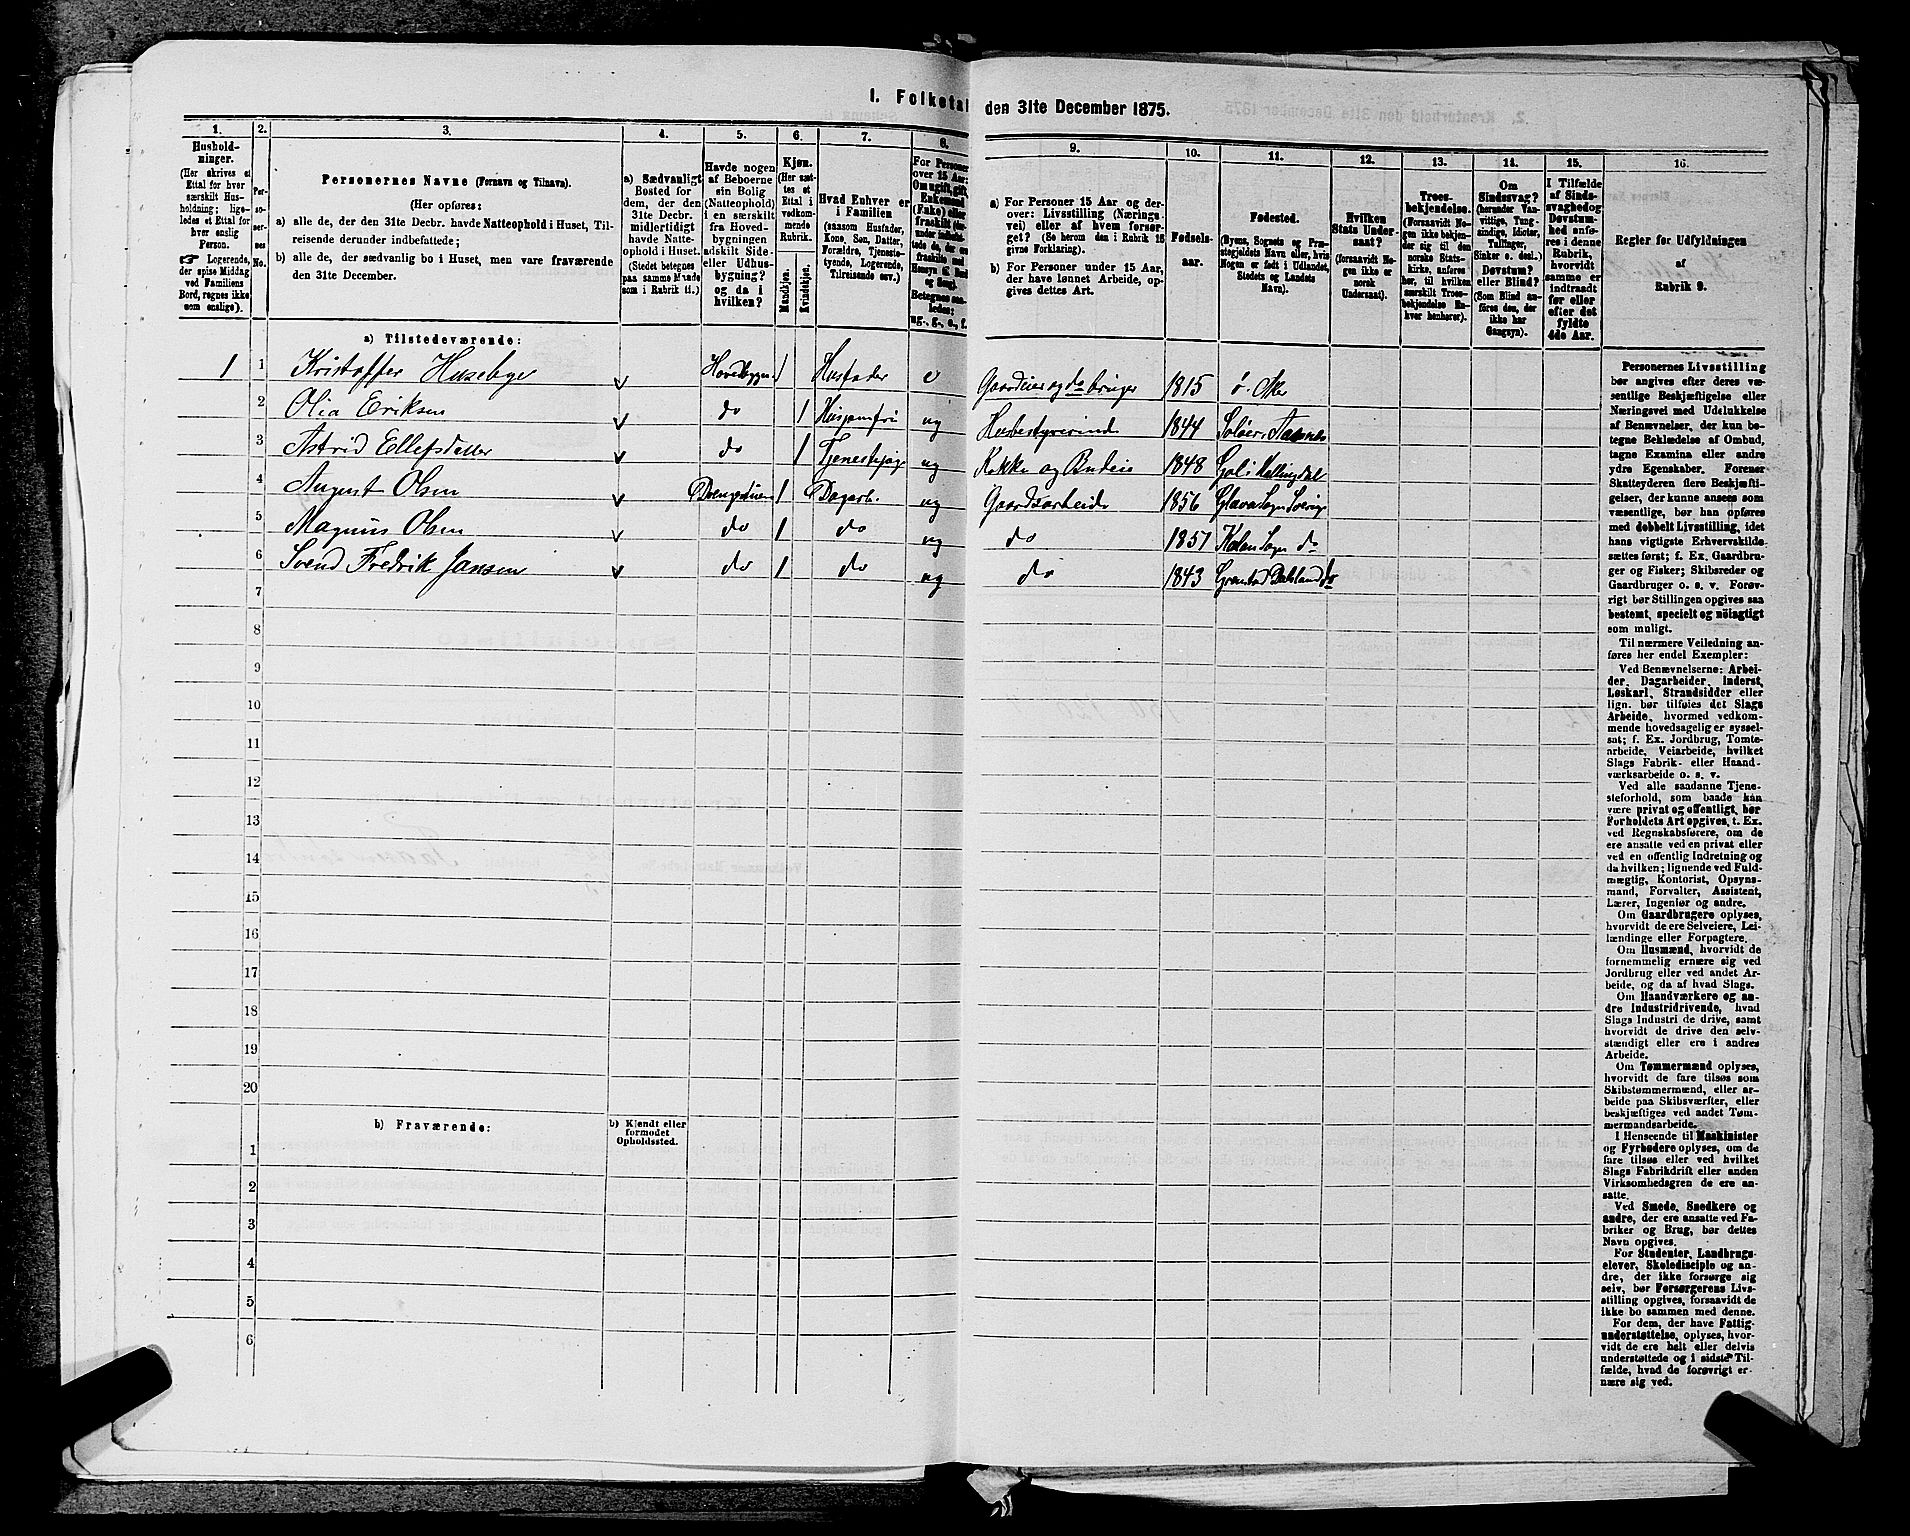 1. Folketal den 31te December 1875.
1. 2. 3. 4. 5. 6. 7. 8. 9. 10. 11. 12. 13. 14. 15. 16.
Hushold-
ninger.
(Her skrives et
Ettal for hver
særskilt Hus-
holdning; lige-
ledes et Ettal for
hver enslig
Person.
☛ Logerende,
der spise Middag
ved Familiens
Bord, regnes ikke
som enslige).
Per-
so-
ner-
nes
No.
Personernes Navne (Fornavn og Tilnavn).
(Her opføres:
a) alle de, der den 31te Decbr. havde Natteophold i Huset, Til-
reisende derunder indbefattede;
b) alle de, der sædvanlig bo i Huset, men vare fraværende
den 31te December.
a) Sædvanligt
Bosted for
dem, der den
31te Decbr.
midlertidigt
havde Natte-
ophold i Huset.
(Stedet betegnes
paa samme Maade
som i Rubrik 11.)
Havde nogen
af Beboerne
sin Bolig
(Natteophold)
i en særskilt
fra Hoved-
bygningen
adskilt Side-
eller Udhus-
bygning?
og da i
hvilken?
Kjøn.
(Her sæt-
tes et
Ettal i
vedkom-
mende
Rubrik.
Mandkjøn.
Kvindekjøn.
Hvad Enhver er
i Familien
(saasom Husfader,
Kone, Søn, Datter,
Forældre, Tjeneste-
tyende, Logerende,
Tilreisende osv.)
For
Personer
over 15 Aar:
Om ugift, gift,
Enkemand
(Enke) eller
fraskilt
Betegnes saa-
ledes:
ug., g., e., f.
a) For Personer 15 Aar og der-
over: Livsstilling (Nærings-
vei) eller af hvem forsør-
get? (Se herom den i Rubrik 16
givne Forklaring).
b) For Personer under 15 Aar,
der have lønnet Arbeide, op-
gives dettes Art.
Fødsels-
aar.
Fødested.
(Byens, Sognets og Præ-
stegjeldets Navn eller, hvis
Nogen er født i Udlandet,
Stedets og Landets
Navn).
Hvilken
Stats Under-
saat?
(forsaavidt No-
gen ikke er
norsk
Undersaat).
Troes-
bekjendelse.
(Forsaavidt No-
gen ikke bekjen-
der sig til den
norske Stats-
kirke, anføres
her, til hvilken
særskilt Troes-
bekjendelse En-
hver henhører).
Om
Sindssvag?
(herunder Van-
vittige, Tung-
sindige, Idioter,
Tullinger,
Sinker o. desl.)
Døvstum?
eller Blind?
(Som Blind an-
føres den, der
ikke har
Gangsyn).
I Tilfælde
af Sinds-
svaghed og
Døvstum-
hed anfø-
res i denne
Rubrik,
hvorvidt
samme er
indtraadt
før eller
efter det
fyldte
4de Aar.
Regler for Udfyldningen
af
Rubrik 9.
a) Tilstedeværende:
1 1 Kristoffer Husebye Hovedbygn. 1 Husfader e Gaardeier og do bruger 1815 ø. Aker
2 Olia Eriksen do 1 ug 1844 Solør
3 Astrid Ellefsdatter do 1 ug Kokke og Budeie 1848 Gol i Hallingdal
4 August Olsen 1 Dagarb. ug Gaardsarbeide 1856 Glava Sogn Sverige
5 Magnus Olsen do 1 do ug do 1857 Sogn do
6 Svend Fredrik Jansen do 1 do ug do 1843 Dalsland do
7
8
9
10
11
12
13
14
15
16
17
18
19
20
b) Fraværende:
b) Kjendt eller
formodet
Opholdssted.
1
2
3
4
5
6
Personernes Livsstilling
bør angives efter deres væ-
sentlige Beskjæftigelse eller
Næringsvei med Udelukkelse
af Benævnelser, der kun be-
tegne Beklædelse af Ombud,
tagne Examina eller andre
ydre Egenskaber. Forener
Skatteyderen flere Beskjæfti-
gelser, der kunne ansees som
væsentlige, bør han opføres
med dobbelt Livsstilling, idet
hans vigtigste Erhvervskilde
sættes først; f. Ex. Gaardbru-
ger og Fisker; Skibsreder og
Gaardbruger o. s. v. Forøv-
rigt bør Stillingen opgives saa
bestemt, specielt og nöiagtigt
som muligt.
Til nærmere Veiledning an-
føres her endel Exempler:
Ved Benævnelserne: Arbei-
der, Dagarbeider, Inderst,
Løskarl, Strandsidder eller
lign. bør tilføies det Slags
Arbeide, hvormed vedkom-
mende hovedsagelig er syssel-
sat; f. Ex. Jordbrug, Tomte-
arbeide, Veiarbeide, hvilket
Slags Fabrik- eller Haand-
værksarbeide o. s. v.
Ved alle saadanne Tjene-
steforhold, som baade kan
være privat og offentligt, bør
Forholdets Art opgives, t. Ex.
ved Regnskabsførere, om de
ere ansatte ved en privat eller
ved en offentlig Indretning og
da hvilken; lignende ved Fuld-
mægtig, Kontorist, Opsyns-
mand, Forvalter, Assistent,
Lærer, Ingeniør og andre.
Om Gaardbrugere oplyses,
hvorvidt de ere Selveiere, Lei-
lændinge eller Forpagtere.
Om Husmænd, hvorvidt de
fornemmelig ernære sig ved
Jordbrug eller ved andet Ar-
beide, og da af hvad Slags.
Om Haandværkere og an-
dre Industridrivende, hvad
Slags Industri de drive, samt
hvorvidt de drive den selv-
stændigt eller ere i andres
Arbeide.
Om Tømmermænd oplyses,
hvorvidt de fare tilsøs som
Skibstømmermænd, eller ar-
beide paa Skibsværfter, eller
beskjæftiges ved andet Tøm-
mermandsarbeide.
I Henseende til Maskinister
og Fyrbødere oplyses, om de
fare tilsøs eller ved hvilket
Slags Fabrikdrift eller anden
Virksomhedsgren de ere an-
satte.
Ved Smede, Snedkere og
andre, der ere ansatte ved Fa-
briker og Brug, bør dettes
Navn opgives.
For Studenter, Landbrugs-
elever, Skoledisciple og an-
dre, der ikke forsørge sig
selv, bør Forsørgerens Livs-
stilling opgives, forsaavidt de
ikke bo sammen med denne.
For dem, der have Fattig-
understøttelse, oplyses, hvor-
vidt de ere helt eller delvis
understøttede og i sidste Til-
fælde, hvad de forøvrigt er-
nære sig ved.